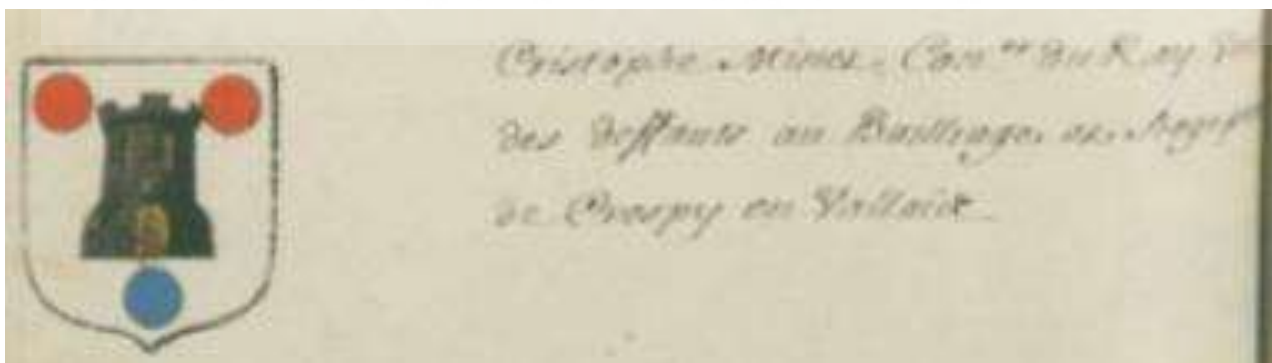 Cristophe Minex Con.er du Roy
des deffauts au Bailliage et Siege
de Crespy en Vallois